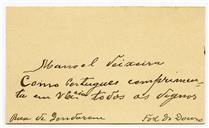 Manoel Teixeira
Como Portuguez comprimen-
ta em V. Exa todos os dignos
Rua de Gondarem Foz do Douro